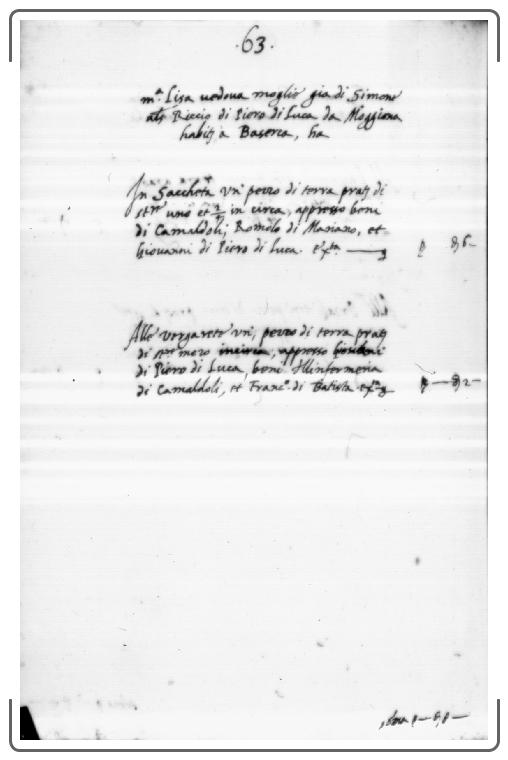 .63.
mª Lisa vedova moglie gia di Simone
als Riccio di Piero di Luca da Moggiona
habitᵃ a Baserca, ha
In Saccheta un pezzo di terra pratᵃ di
uno et 1/2 in circa, appresso beni
di Camaldoli, Romolo di Mariano, et
Giovanni di Piero di Luca.
Alle Vergarete un, pezzo di terra pratᵃ
di mezo incirca, appresso
di Piero di Luca, beni Infermeria
di Camaldoli, et Francº di Batista